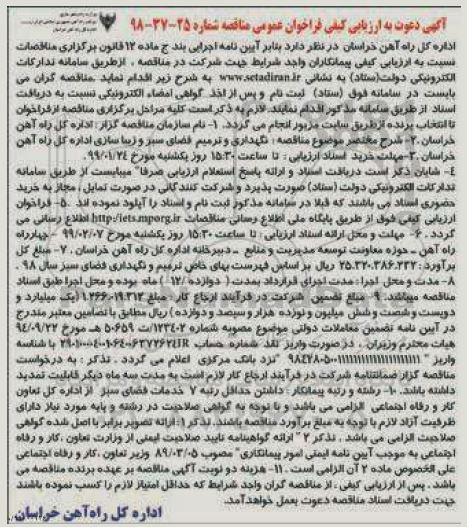 آگهی دعوت به ارزیابی کیفی فراخوان عمومی مناقصه شماره ۲۵-۳۷-۹۸
اداره کل راه آهن خراسان در نظر دارد بنابر آیین نامه اجرایی بند ج ماده ۱۲ قانون برگزاری مناقصات
نسبت به ارزیابی کیفی پیمانکاران واجد شرایط جهت شرکت در مناقصه ، ازطریق سامانه تدارکات
الکترونیکی دولت(ستاد) به نشانی www.setadiran.ir به شرح زیر اقدام نماید .مناقصه گران می
بایست در سامانه فوق (ستاد) ثبت نام و پس از اخذ گواهی امضاء الکترونیکی نسبت به دریافت
اسناد از طریق سامانه مذکور اقدام نمایند. لازم به ذکر است کلیه مراحل برگزاری مناقصه ازفراخوان
تا انتخاب برنده ازطریق سایت مزبور انجام می گردد. ۱- نام سازمان مناقصه گزار: اداره کل راه آهن
خراسان .۲- شرح مختصر موضوع مناقصه : نگهداری و ترمیم فضای سبز و زیبا سازی اداره کل راه آهن
خراسان .۳-مهلت خرید اسناد ارزیابی : تا ساعت ۱۵:۳۰ روز یکشنبه مورخ ۹۹/۰۱/۲۴.
۴- شایان ذکر است دریافت اسناد و ارائه پاسخ استعلام ارزیابی صرفا" میبایست از طریق سامانه
تدارکات الکترونیکی دولت (ستاد) صورت پذیرد و شرکت کنندگانی در صورت تمایل ، مجاز به خرید
حضوری اسناد می باشند که قبلا در سامانه مذکور ثبت نام و اسناد را آپلود نموده اند .۵- فراخوان
ارزیابی کیفی فوق از طریق پایگاه ملی اطلاع رسانی مناقصات http://iets.mporg.ir اطلاع رسانی می
گردد . ۶- مهلت و محل ارائه اسناد ارزیابی : تا ساعت ۱۵:۳۰ روز یکشنبه مورخ ۹۹/۰۲/۰۷ – چهارراه
راه آهن – حوزه معاونت توسعه مدیریت و منابع – دبیرخانه اداره کل راه آهن خراسان .۷- مبلغ کل
برآورد : ۲۵.۳۲۰.۳۸۶.۲۳۲ ریال بر اساس فهرست بهای خاص ترمیم و نگهداری فضای سبز سال ۹۸ .
۸- مدت و محل اجرا : مدت اجرای قرارداد بمدت ( دوازده /۱۲ ) ماه بوده و محل اجرا طبق اسناد
مناقصه میباشد. ۹- مبلغ تضمین شرکت در فرآیند ارجاع کار : مبلغ ۱.۲۶۶.۰۱۹.۳۱۲ (یک میلیارد و
دویست و شصت و شش میلیون و نوزده هزار و سیصد و دوازده ) ریال مطابق با تضامین معتبر مندرج
در آیین نامه تضمین معاملات دولتی موضوع مصوبه شماره ۱۲۳۴۰۲/ت ۵۰۶۵۹ هـ مورخ ۹۴/۰۹/۲۲
هیات محترم وزیران . در صورت واریز نقد شماره حساب با شناسه
واریز " " نزد بانک مرکزی اعلام می گردد . تذکر : به درخواست
مناقصه گزار ضمانتنامه شرکت در فرآیند ارجاع کار لازم است به مدت سه ماه دیگر قابلیت تمدید
داشته باشد. ۱۰- رشته و رتبه پیمانکار: داشتن حداقل رتبه ۷ خدمات فضای سبز از اداره کل تعاون
کار و رفاه اجتماعی الزامی می باشد و با توجه به گواهی صلاحیت در رشته و پایه مورد نیاز دارای
ظرفیت آزاد لازم با توجه به مبلغ برآورد مناقصه باشند. تذکر ۱: ارائه تصویر برابر با اصل شده گواهی
صلاحیت الزامی می باشد . تذکر ۲ " ارائه گواهینامه تایید صلاحیت ایمنی از وزارت تعاون ،کار و رفاه
اجتماعی به موجب آیین نامه ایمنی امور پیمانکاری" مصوب ۸۹/۰۳/۰۵ وزیر تعاون ،کار و رفاه اجتماعی
علی الخصوص ماده ۲ آن الزامی است . ۱۱- هزینه دو نوبت آگهی مناقصه بر عهده برنده مناقصه می
باشد . پس از ارزیابی کیفی ، از مناقصه گران واجد شرایط که حداقل امتیاز لازم را کسب نموده باشند
جهت دریافت اسناد مناقصه دعوت بعمل خواهدآمد.
اداره کل راه‌آهن خراسان